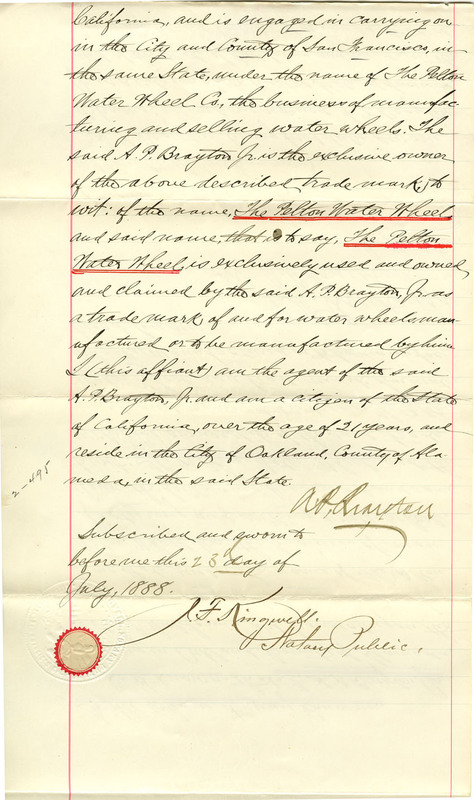 California, and is engaged in carrying on
in the City and County of San Francisco, in
the same State, under the name of The Pelton
Water Wheel Co, the business of manufac
turing and selling water wheels. The
said A. P. Brayton Jr. is the exclusive owner
of the above described trade mark, to
wit: of the name, The Pelton Water Wheel
and said name, that is to say, The Pelton
Water Wheel, is exclusively used and owned
and claimed by the said A. P. Brayton, Jr. as
a trade mark of and for water wheels, man-
ufactured or to be manufactured by him.
I (this affiant) am the agent of the said
A. P. Brayton, Jr. and am a citizen of the State
of California, over the age of 21 years, and
reside in the City of Oakland, County of Ala
meda, in the said State.
2-495
A. P. Brayton
Subscribed and sworn to
before me this 23d day of
July, 1888.
J. F. Kingwell.
Notary Public.